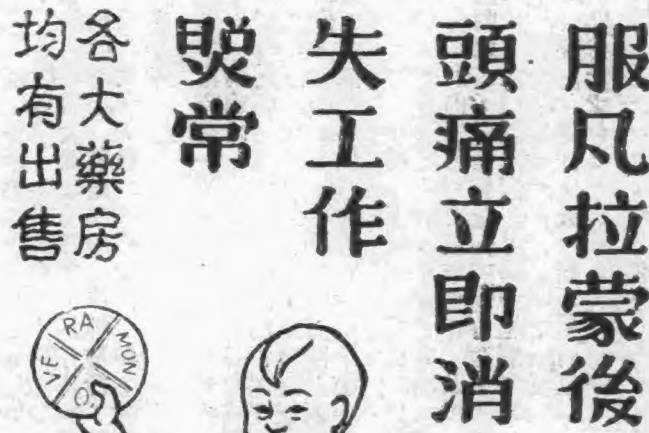 服凡拉蒙後
頭痛立即消
失工作
常
各大藥房
均有出售
VE RA MON